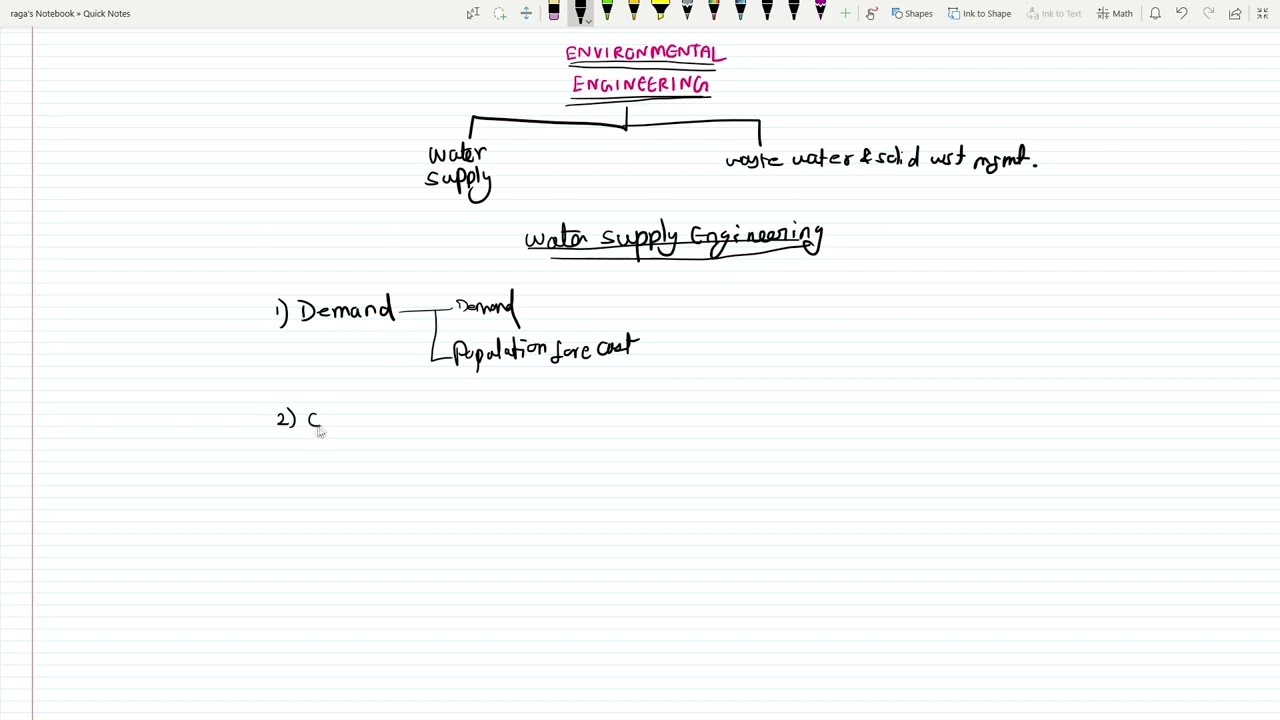 raga's Notebook » Quick Notes
Shapes
Ink to Shape
Ink to Text
Math
ENVIRONMENTAL
ENGINEERING
water
supply
waste water & solid wst mgmt.
water supply Engineering
1) Demand
Demand
Population fore cast
2) C